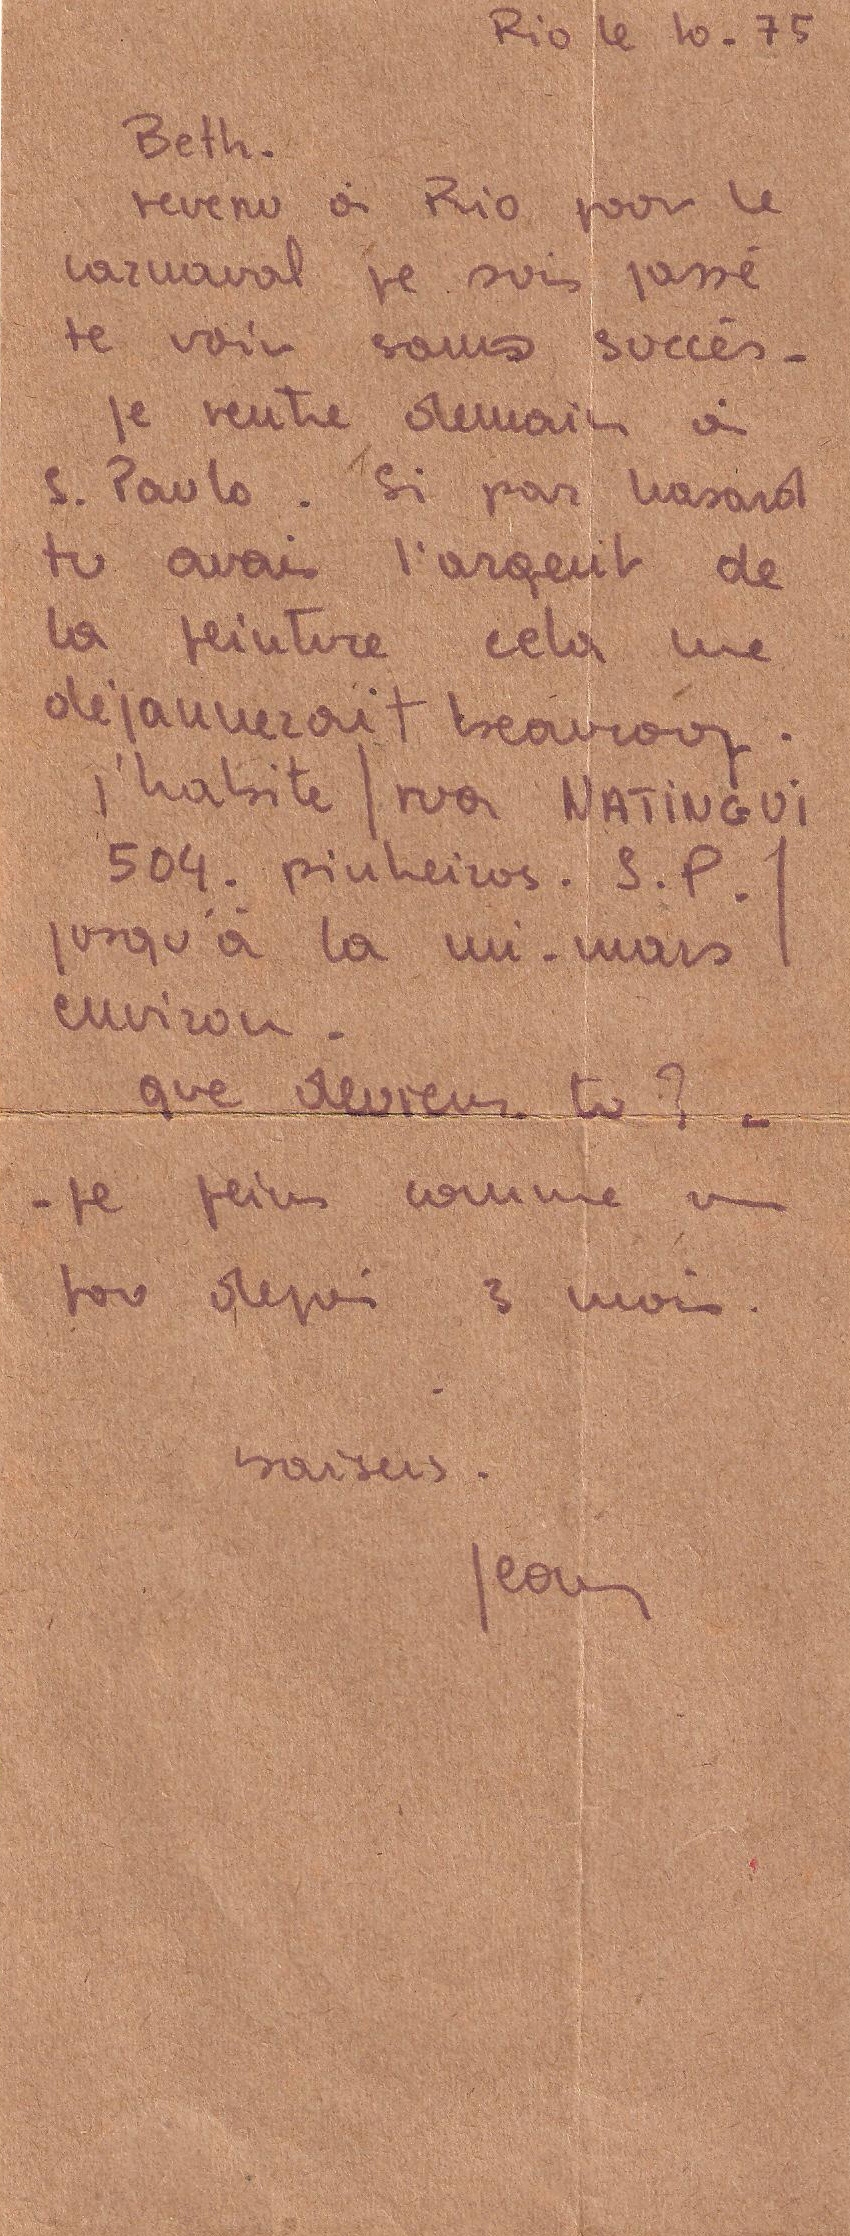 Rio le 10-75
Beth.
revenu à Rio pour le
carnaval je suis passé
te voir sans succés-
je rentre demain à
S. Paulo. Si par hasard
tu avais l'argent de
la peinture cela me
déjannerait beaucoup.
j'habite / rua NATINGUI
504. pinheiros. S.P. /
jusqu'à la mi-mars
environ.
que deviens tu? -
-je peins comme un
fou depuis 3 mois.
baisers.
Jean